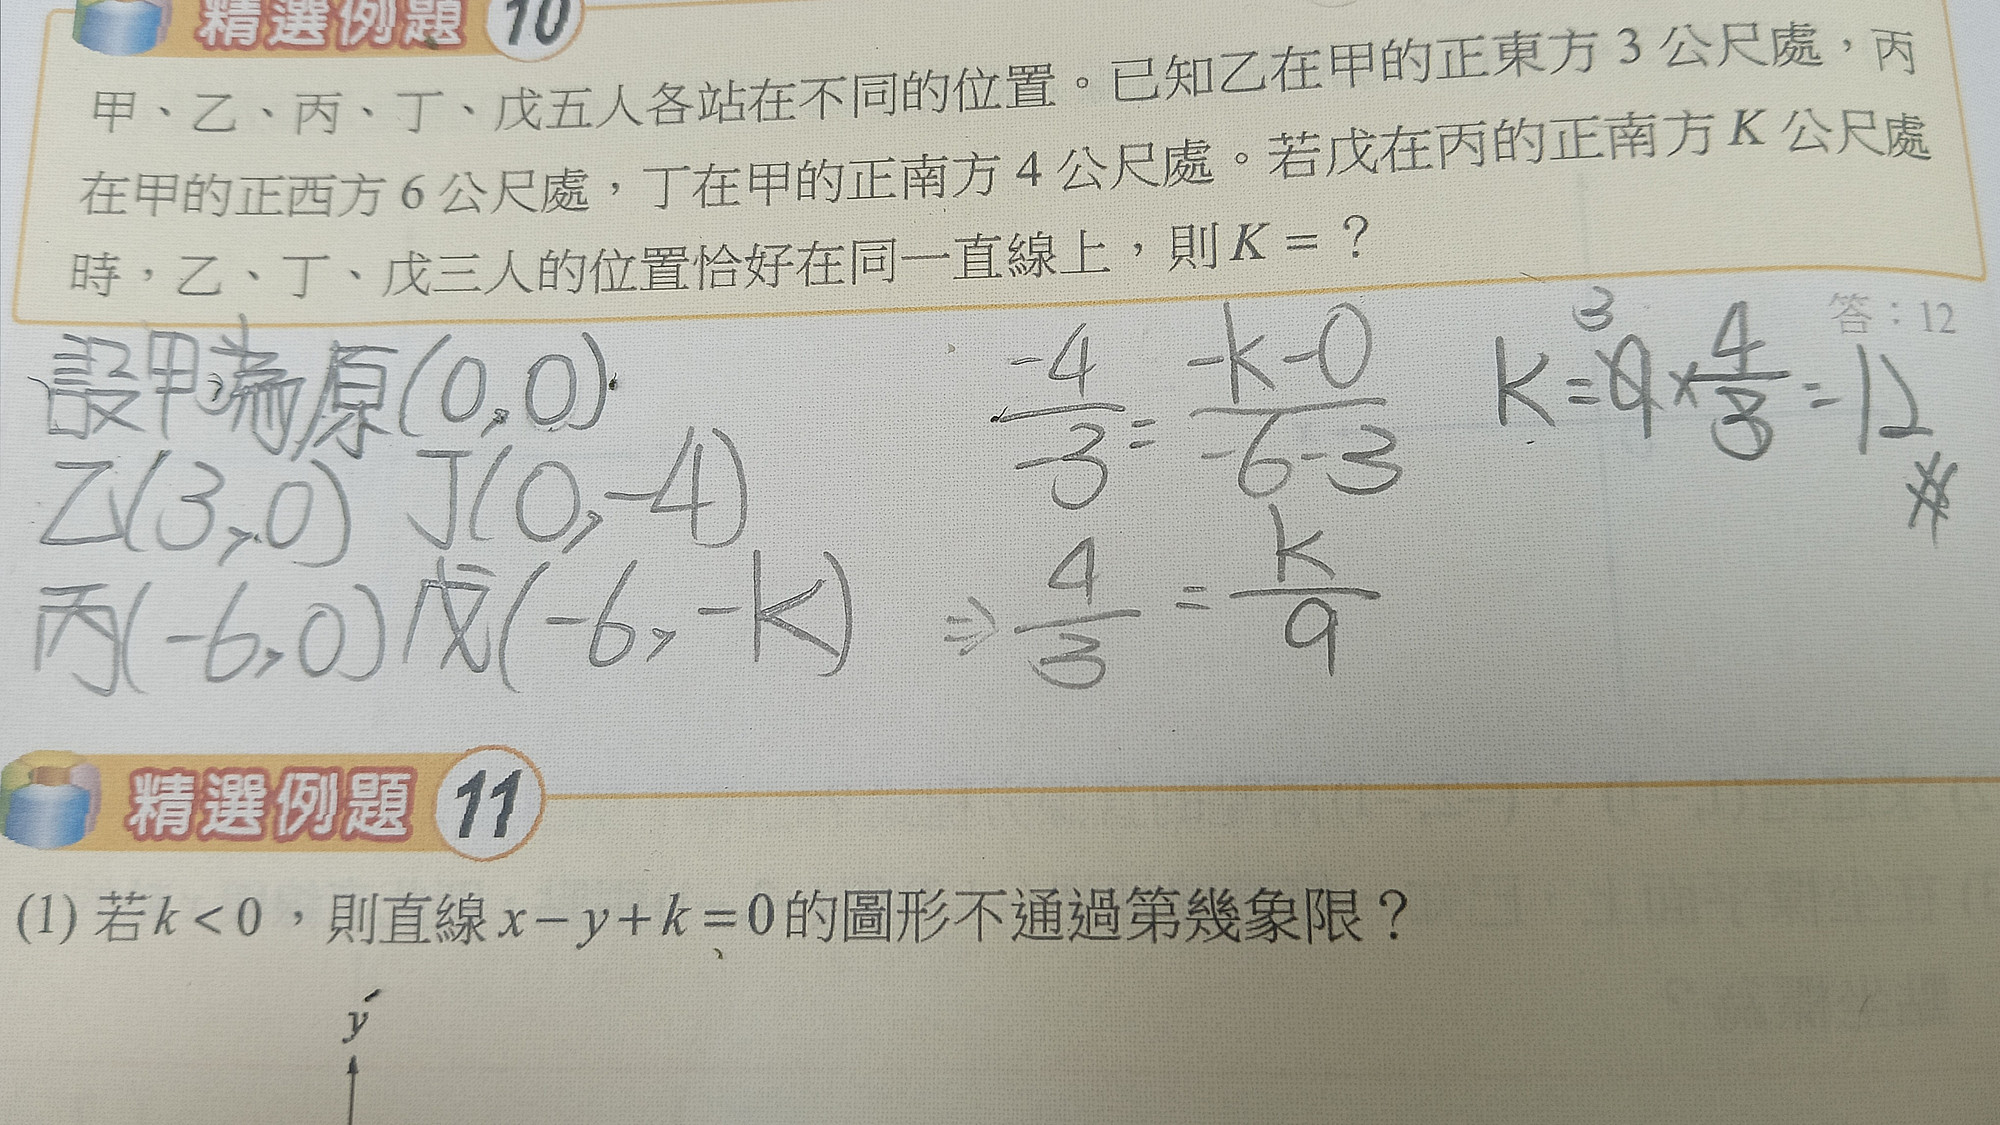 精選例題 10
甲、乙、丙、丁、戊五人各站在不同的位置。已知乙在甲的正東方 3 公尺處,丙
在甲的正西方 6 公尺處,丁在甲的正南方 4 公尺處。若戊在丙的正南方 K 公尺處
時,乙、丁、戊三人的位置恰好在同一直線上,則 K = ?
答:12
設甲為原(0,0)
乙(3,0) 丁(0,-4)
丙(-6,0) 戊(-6,-k)
-4/-3 = -k-0/-6-3
⇒ 4/3 = k/9
3
k=9×4/3=12
#
精選例題 11
(1) 若 k < 0,則直線 x − y + k = 0 的圖形不通過第幾象限?
y